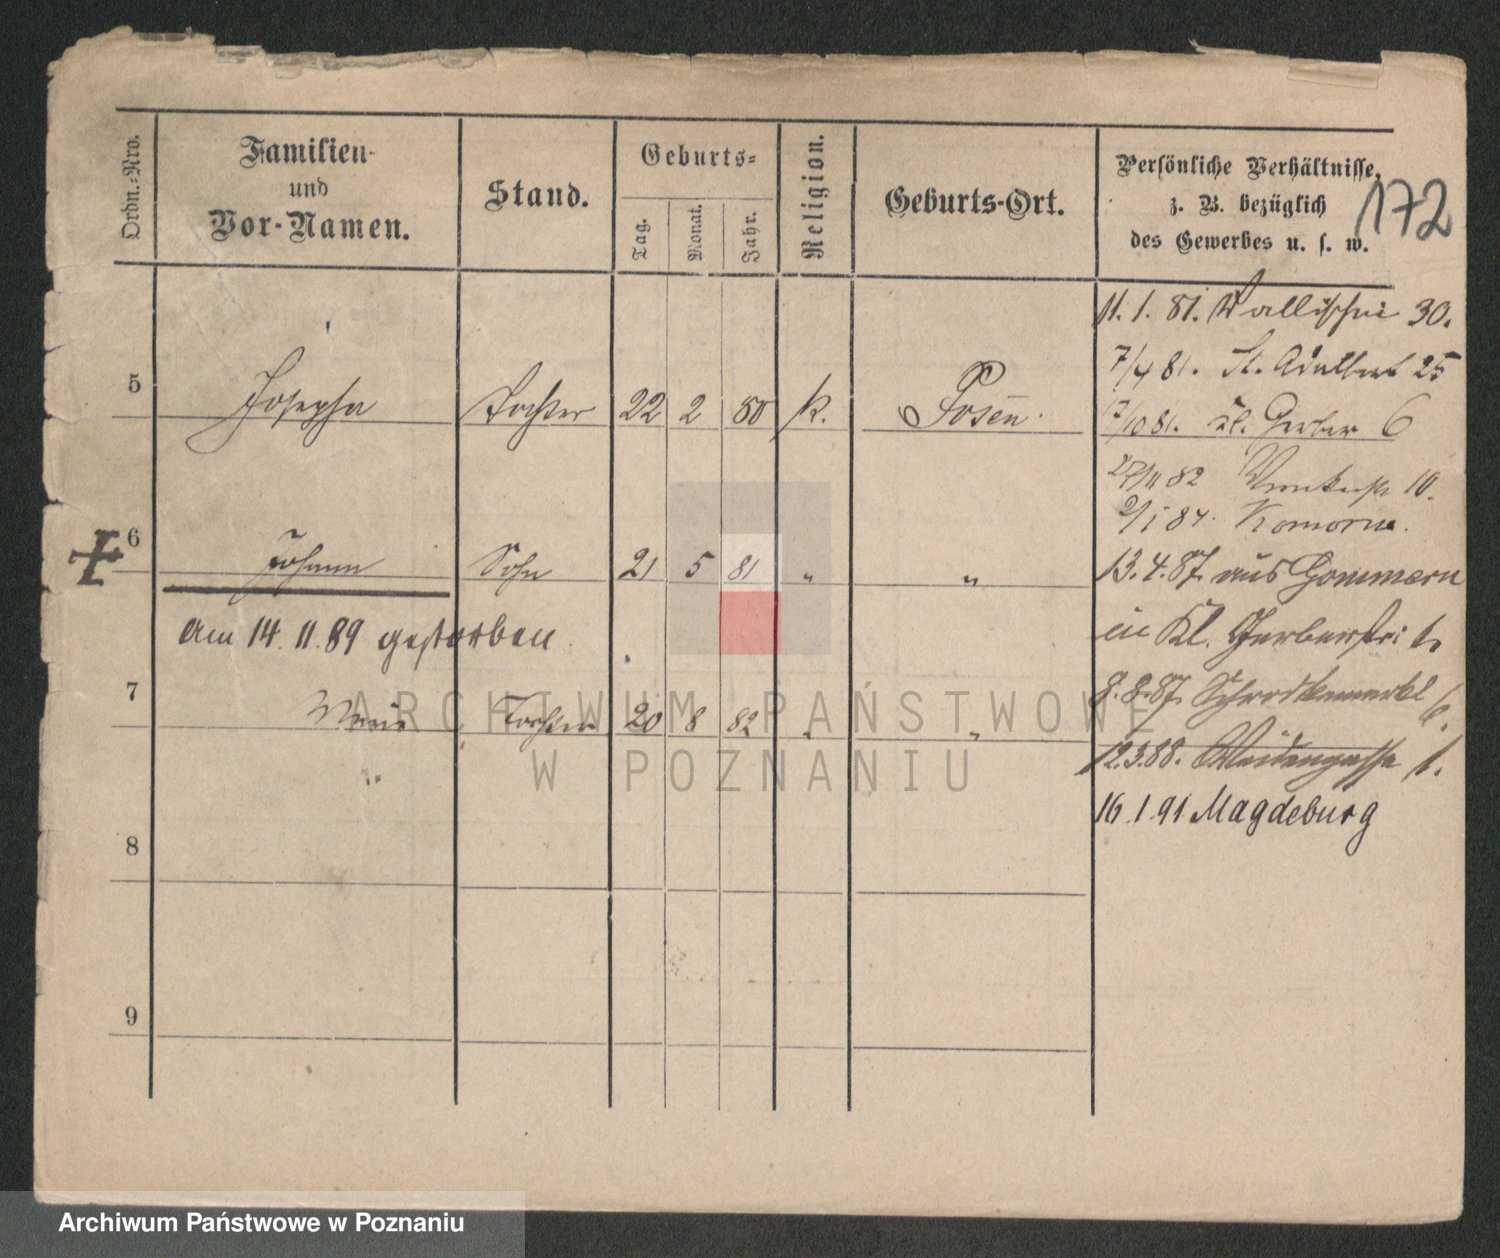 Ordn.-Nro.
Familien-
und
Vor-Namen.
Stand.
Geburts-
Tag.
Monat.
Jahr.
Religion.
Geburts-Ort.
Persönliche Verhältnisse,
z. B. bezüglich
des Gewerbes u. s. w.
172
11. 1. 81. Wallischei 30.
7/4 81. St. Adalbert 25
5 Josepha Tochter 22 2 80 k. Posen.
7/10 81. kl. Gerber 6
27/11 82 10.
2/1 84. Komornik.
6 Johann Sohn 21 5 81 " "
13. 4. 87. aus Gommern
in Kl. Gerberstr. 6
am 14. 11. 89 gestorben.
7 Marie Tochter 20 8 82 " "
8. 8. 87. Schrodkamarkt 6.
12. 3. 88. Weidengasse 1.
16. 1. 91 Magdeburg
8
9
ARCHIWUM PAŃSTWOWE
W POZNANIU
Archiwum Państwowe w Poznaniu